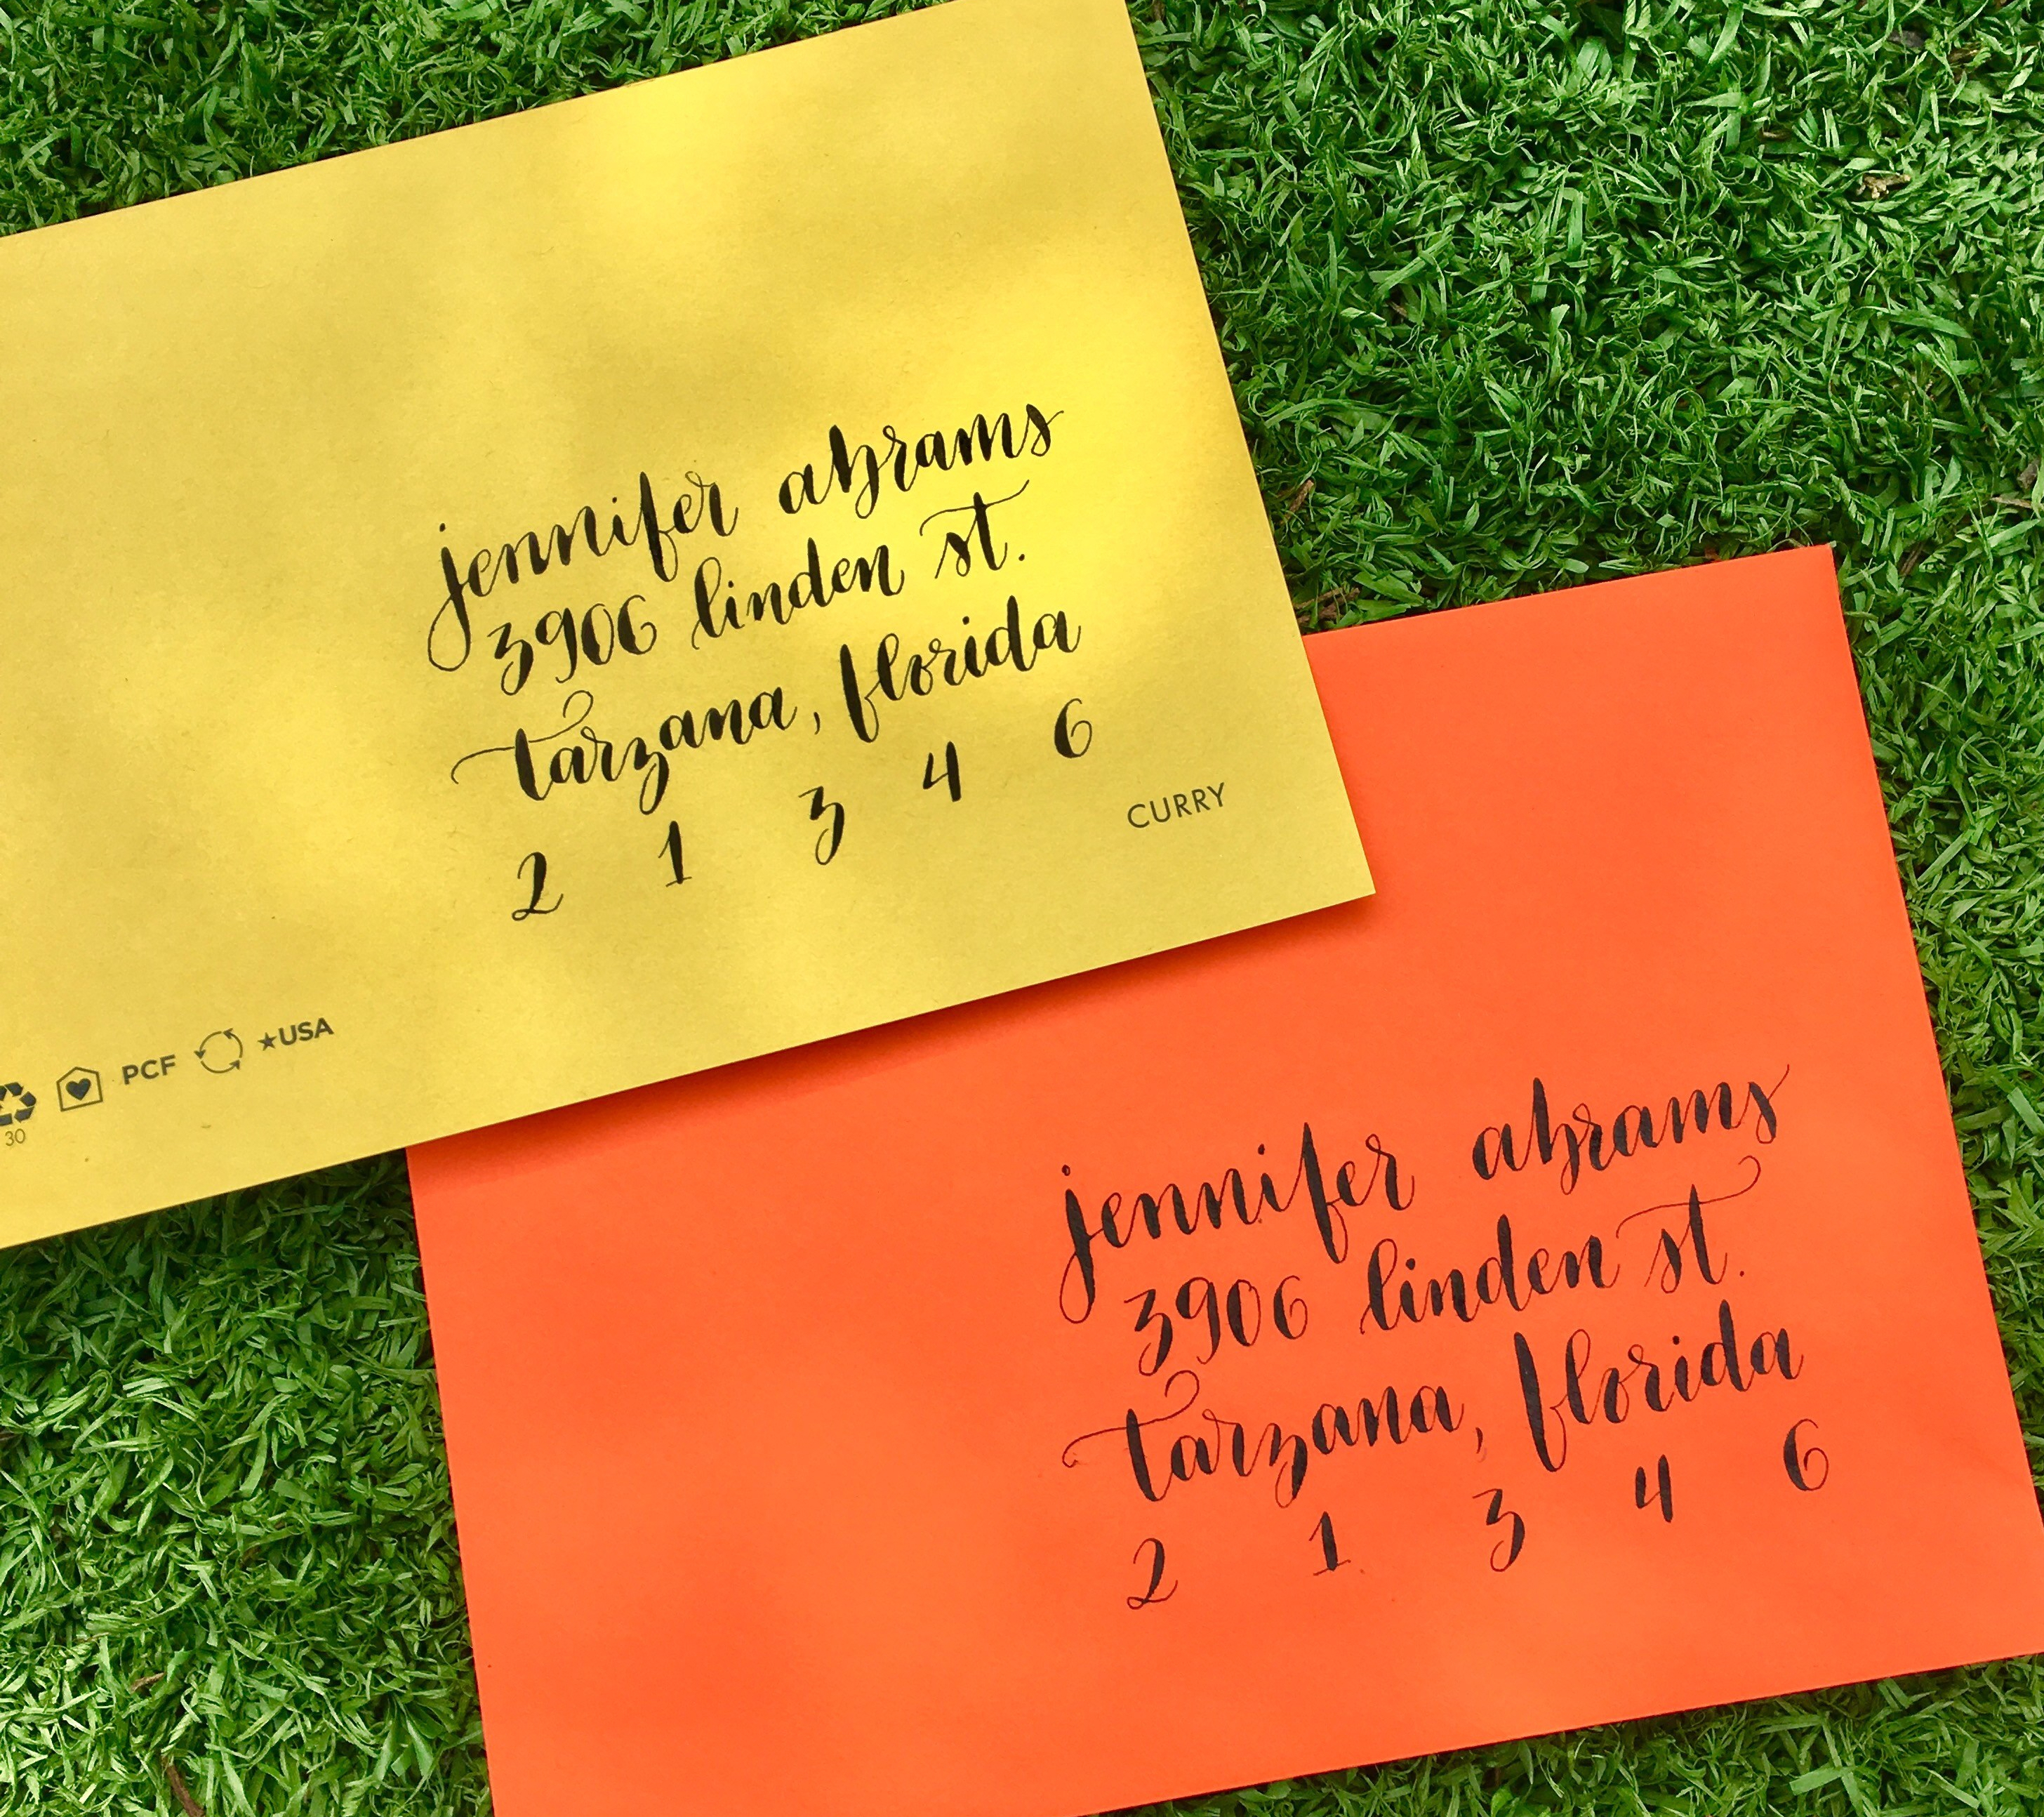 jennifer abrams
3906 linden st.
tarzana, florida
2 1 3 4 6
CURRY
30 PCF ★USA
jennifer abrams
3906 linden st.
tarzana, florida
2 1 3 4 6